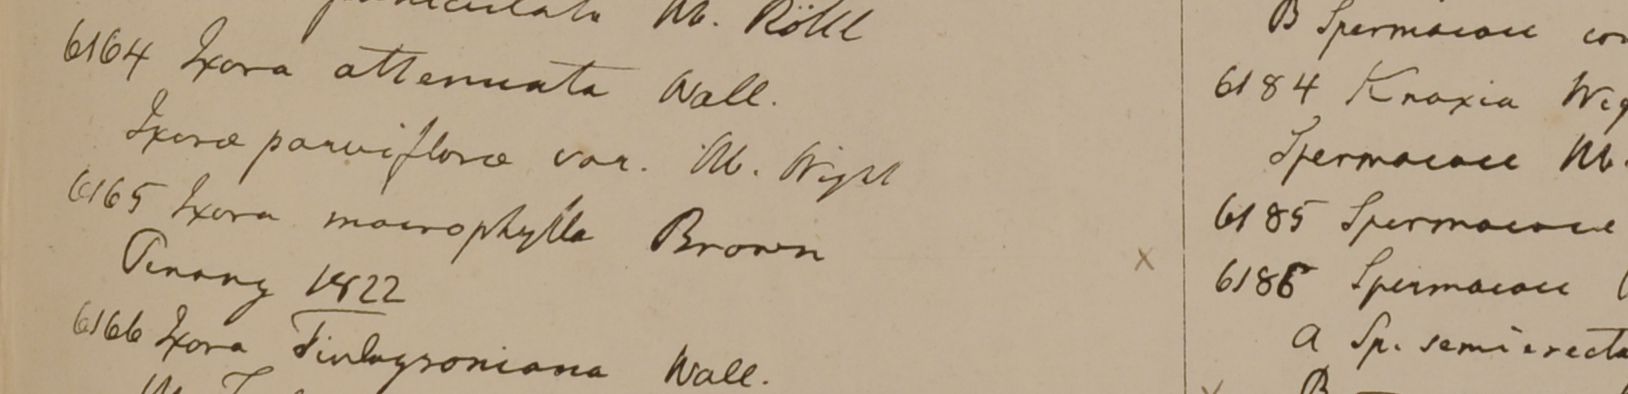 paniculata Hb. Röttl
6164 Ixora attenuata Wall.
Ixoræ parvifloræ var. Hb. Wight
6165 Ixora macrophylla Brown
Penang 1822
6166 Ixora Finlaysoniana Wall.
B Spermacoce
6184 Knoxia
Spermacoce Hb.
6185 Spermacoce
6186 Spermacoce
a Sp. semierecta
B